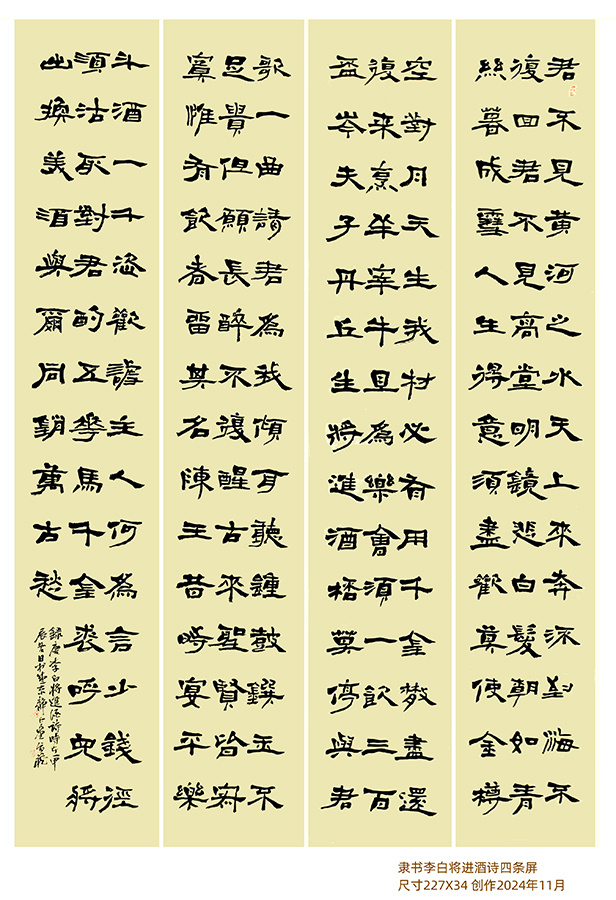 君不見黃河之水天上來奔流到海不
復回君不見高堂明鏡悲白髮朝如青
絲暮成雪人生得意須盡歡莫使金樽
空對月天生我材必有用千金散盡還
復來烹羊宰牛且為樂會須一飲三百
盃岑夫子丹丘生將進酒桮莫停與君
歌一曲請君為我傾耳聽鍾鼓饌玉不
足貴但願長醉不復醒古來聖賢皆寂
寞惟有飲者留其名陳王昔時宴平樂
斗酒一千恣歡謔主人何為言少錢徑
須沽取對君酌五花馬千金裘呼兒將
出換美酒與爾同銷萬古愁
錄唐李白將進酒詩時在甲
辰冬日於北京靜
隶书李白将进酒诗四条屏
尺寸227X34 创作2024年11月